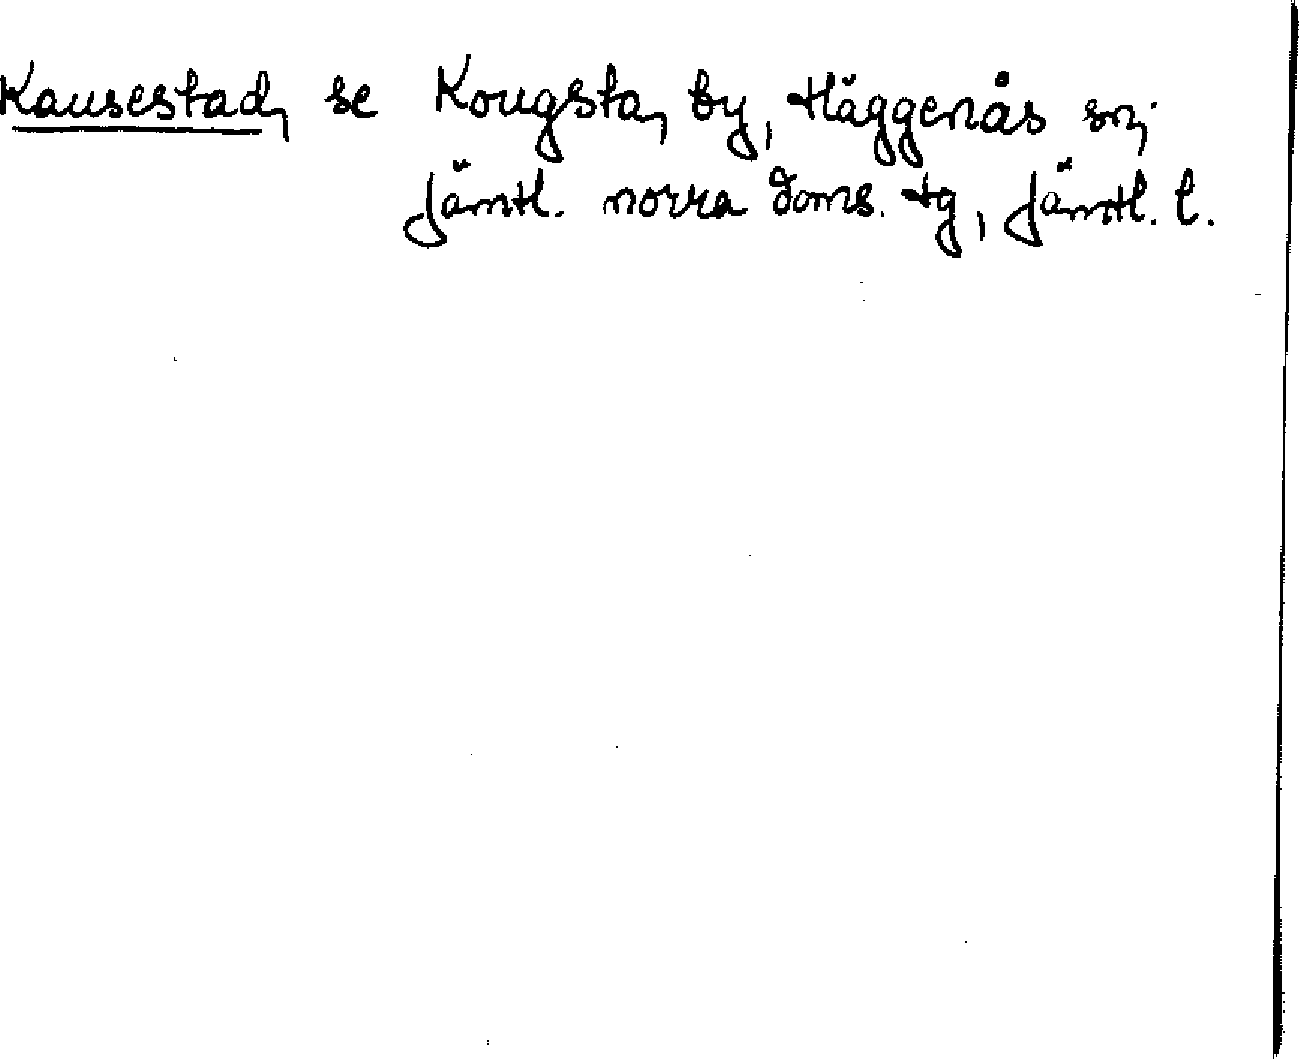 Kausestad, se Kougsta, by, Häggenås sn,
Jämtl. norra doms. tg, Jämtl. l.